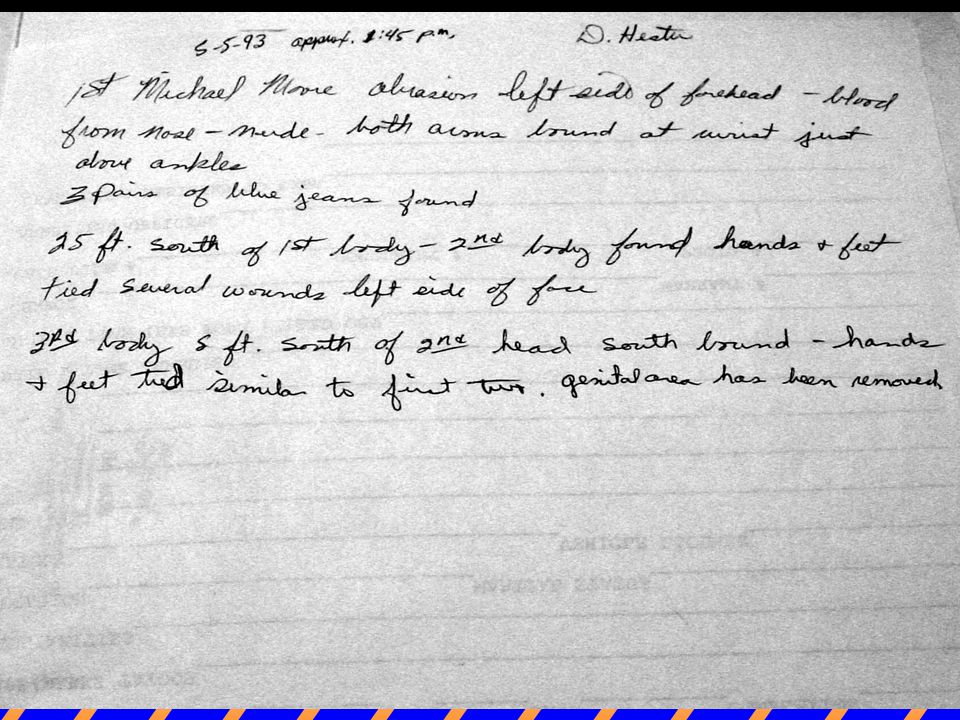 5-5-93 approx. 1:45 p.m. D. Hester
1st Michael Moore abrasion left side of forehead - blood
from nose - nude - both arms bound at wrist just
above ankles
3 pairs of blue jeans found
25 ft. south of 1st body - 2nd body found hands & feet
tied several wounds left side of face
3rd body 5 ft. south of 2nd head south bound - hands
& feet tied similar to first two. genital area has been removed